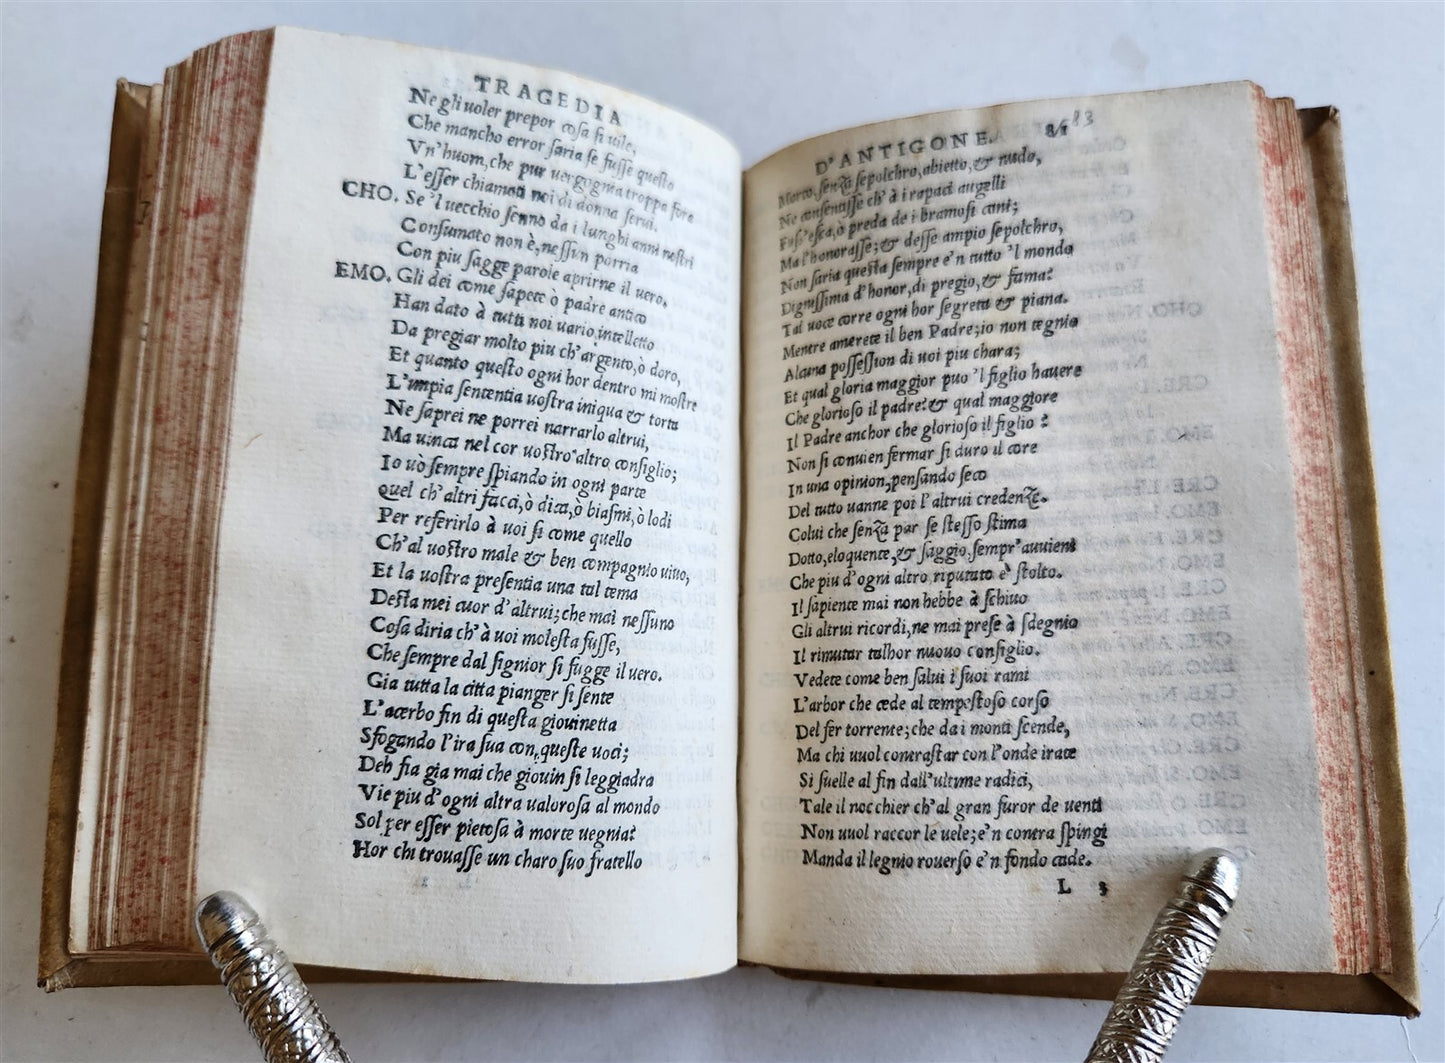 TRAGEDIA
Ne gli uoler prepor cosa si uile,
Che mancho error saria se fusse questo
Vn'huom, che pur uergognia troppo fora
L'esser chiamati noi di donna serui.
CHO. Se 'l uecchio senno da i lunghi anni nostri
Consumato non è, nessun porria
Con piu sagge parole aprirne il uero.
EMO. Gli dei come sapete ò padre antico
Han dato à tutti noi uario intelletto
Da pregiar molto piu ch'argento, ò doro,
Et quanto questo ogni hor dentro mi mostre
L'impia sententia uostra iniqua & torta
Ne saprei ne porrei narrarlo altrui,
Ma uinca nel cor uostro altro consiglio;
Io uò sempre spiando in ogni parte
quel ch'altri facci, ò dica, ò biasmi, ò lodi
Per referirlo à uoi si come quello
Ch'al uostro male & ben compagnio uiuo,
Et la uostra presentia una tal tema
Desta mei cuor d'altrui; che mai nessuno
Cosa diria ch'à uoi molesta fusse,
Che sempre dal signior si fugge il uero.
Gia tutta la citta pianger si sente
L'acerbo fin di questa giouinetta
Sfogando l'ira sua con, queste uoci;
Deh fia gia mai che giouin si leggiadra
Vie piu d'ogni altra ualorosa al mondo
Sol per esser pietosa à morte uegnia?
Hor chi trouasse un charo suo fratello
D'ANTIGONE. 81 83
Morto, senza sepolchro, abietto, & nudo,
Ne consentisse ch'à i rapaci augelli
Fuss'esca, ò preda de i bramosi cani;
Ma l'honorasse; & desse ampio sepolchro,
Non saria questa sempre e'n tutto 'l mondo
Dignissima d'honor, di pregio, & fama?
Tal uoce corre ogni hor segreta & piana.
Mentre amerete il ben Padre; io non tegnio
Alcuna possession di uoi piu chara;
Et qual gloria maggior puo 'l figlio hauere
Che glorioso il padre? & qual maggiore
Il Padre anchor che glorioso il figlio?
Non si conuien fermar si duro il core
In una opinion, pensando seco
Del tutto uanne poi l'altrui credenze.
Colui che senza par se stesso stima
Dotto, eloquente, & saggio, sempr'auuieni
Che piu d'ogni altro riputato è stolto.
Il sapiente mai non hebbe à schiuo
Gli altrui ricordi, ne mai prese à sdegnio
Il rimutar talhor nuouo consiglio.
Vedete come ben salui i suoi rami
L'arbor che cede al tempestoso corso
Del fer torrente; che da i monti scende,
Ma chi uuol contrastar con l'onde irate
Si suelle al fin dall'ultime radici,
Tale il nocchier ch'al gran furor de uenti
Non uuol raccor le uele; e'n contra spingi
Manda il legnio rouerso e'n fondo cade.
L 3